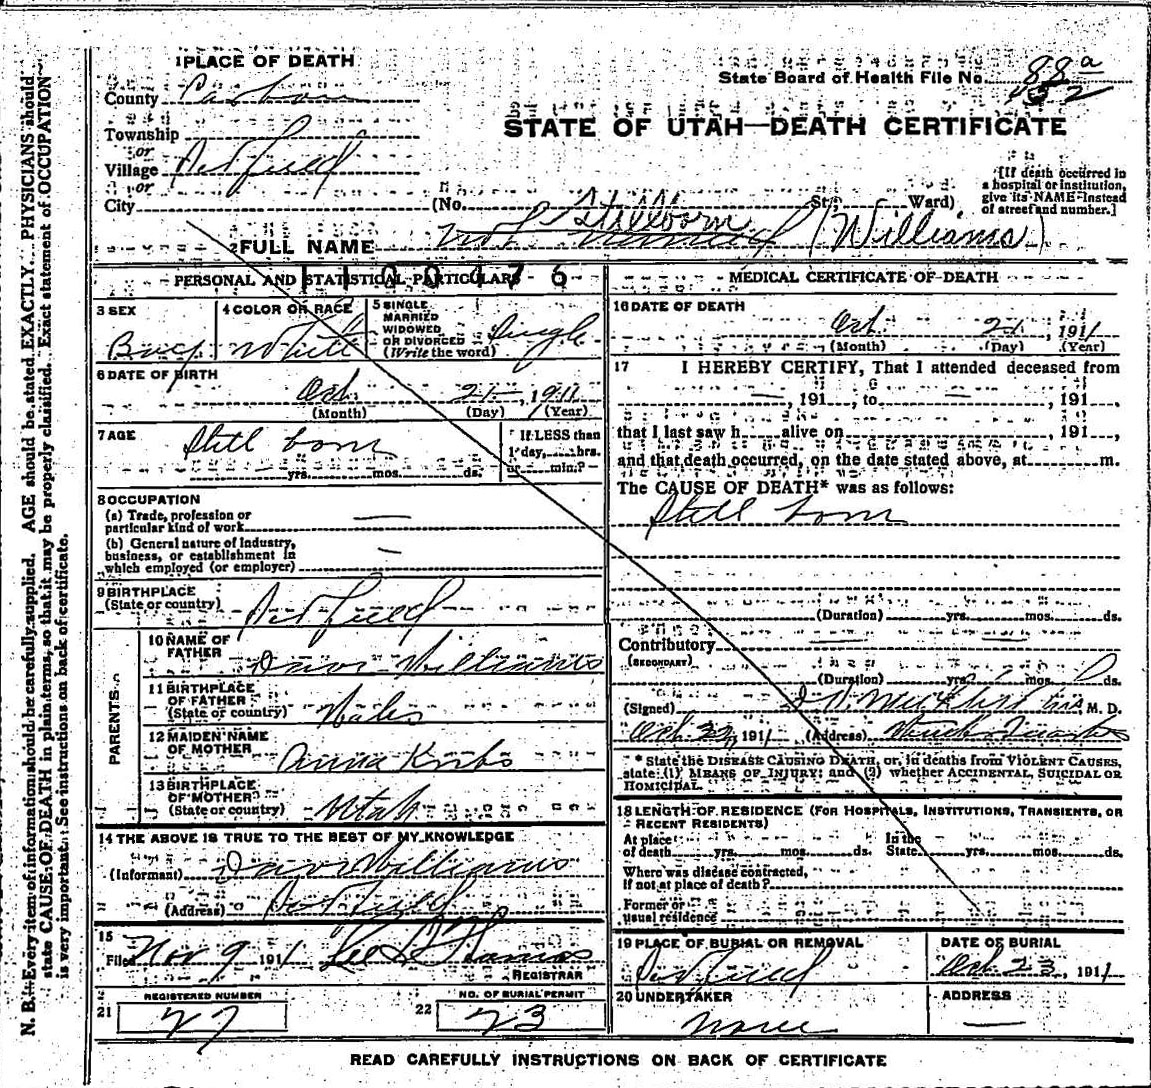 1 PLACE OF DEATH
State Board of Health File No. 88a
County Carbon
STATE OF UTAH—DEATH CERTIFICATE
Township
or
Village
or
City (No. St.; Ward)
[If death occurred in a hospital or institution, give its NAME instead of street and number.]
Stillborn
2 FULL NAME Not named (Williams)
1100476
PERSONAL AND STATISTICAL PARTICULARS
3 SEX Boy
4 COLOR OR RACE White
5 SINGLE MARRIED WIDOWED OR DIVORCED (Write the word) Single
6 DATE OF BIRTH
Oct. 21, 1911
(Month) (Day) (Year)
7 AGE Still born
yrs. mos. ds.
If LESS than 1 day, hrs. or min.?
8 OCCUPATION
(a) Trade, profession or particular kind of work —
(b) General nature of industry, business, or establishment in which employed (or employer) —
9 BIRTHPLACE
(State or country)
PARENTS
10 NAME OF FATHER Williams
11 BIRTHPLACE OF FATHER (State or country) Wales
12 MAIDEN NAME OF MOTHER Anna
13 BIRTHPLACE OF MOTHER (State or country) Utah
14 THE ABOVE IS TRUE TO THE BEST OF MY KNOWLEDGE
(Informant) Williams
(Address)
15
Filed Nov 9 1911
REGISTRAR
REGISTERED NUMBER
21 27
NO. OF BURIAL PERMIT
22 23
MEDICAL CERTIFICATE OF DEATH
16 DATE OF DEATH
Oct. 21, 1911
(Month) (Day) (Year)
17 I HEREBY CERTIFY, That I attended deceased from
—, 191, to —, 191,
that I last saw h alive on , 191,
and that death occurred, on the date stated above, at m.
The CAUSE OF DEATH* was as follows:
Still born
(Duration) yrs. mos. ds.
Contributory — —
(SECONDARY)
(Duration) yrs. mos. ds.
(Signed) M. D.
Oct. 1911 (Address)
* State the DISEASE CAUSING DEATH, or, in deaths from VIOLENT CAUSES, state (1) MEANS OF INJURY; and (2) whether ACCIDENTAL, SUICIDAL OR HOMICIDAL.
18 LENGTH OF RESIDENCE (FOR HOSPITALS, INSTITUTIONS, TRANSIENTS, OR RECENT RESIDENTS)
At place of death yrs. mos. ds. In the State yrs. mos. ds.
Where was disease contracted, if not at place of death?
Former or usual residence
19 PLACE OF BURIAL OR REMOVAL
DATE OF BURIAL
Oct 23, 1911
20 UNDERTAKER
None
ADDRESS
—
READ CAREFULLY INSTRUCTIONS ON BACK OF CERTIFICATE
N. B.—Every item of information should be carefully supplied. AGE should be stated EXACTLY. PHYSICIANS should
state CAUSE OF DEATH in plain terms, so that it may be properly classified. Exact statement of OCCUPATION
is very important. See instructions on back of certificate.